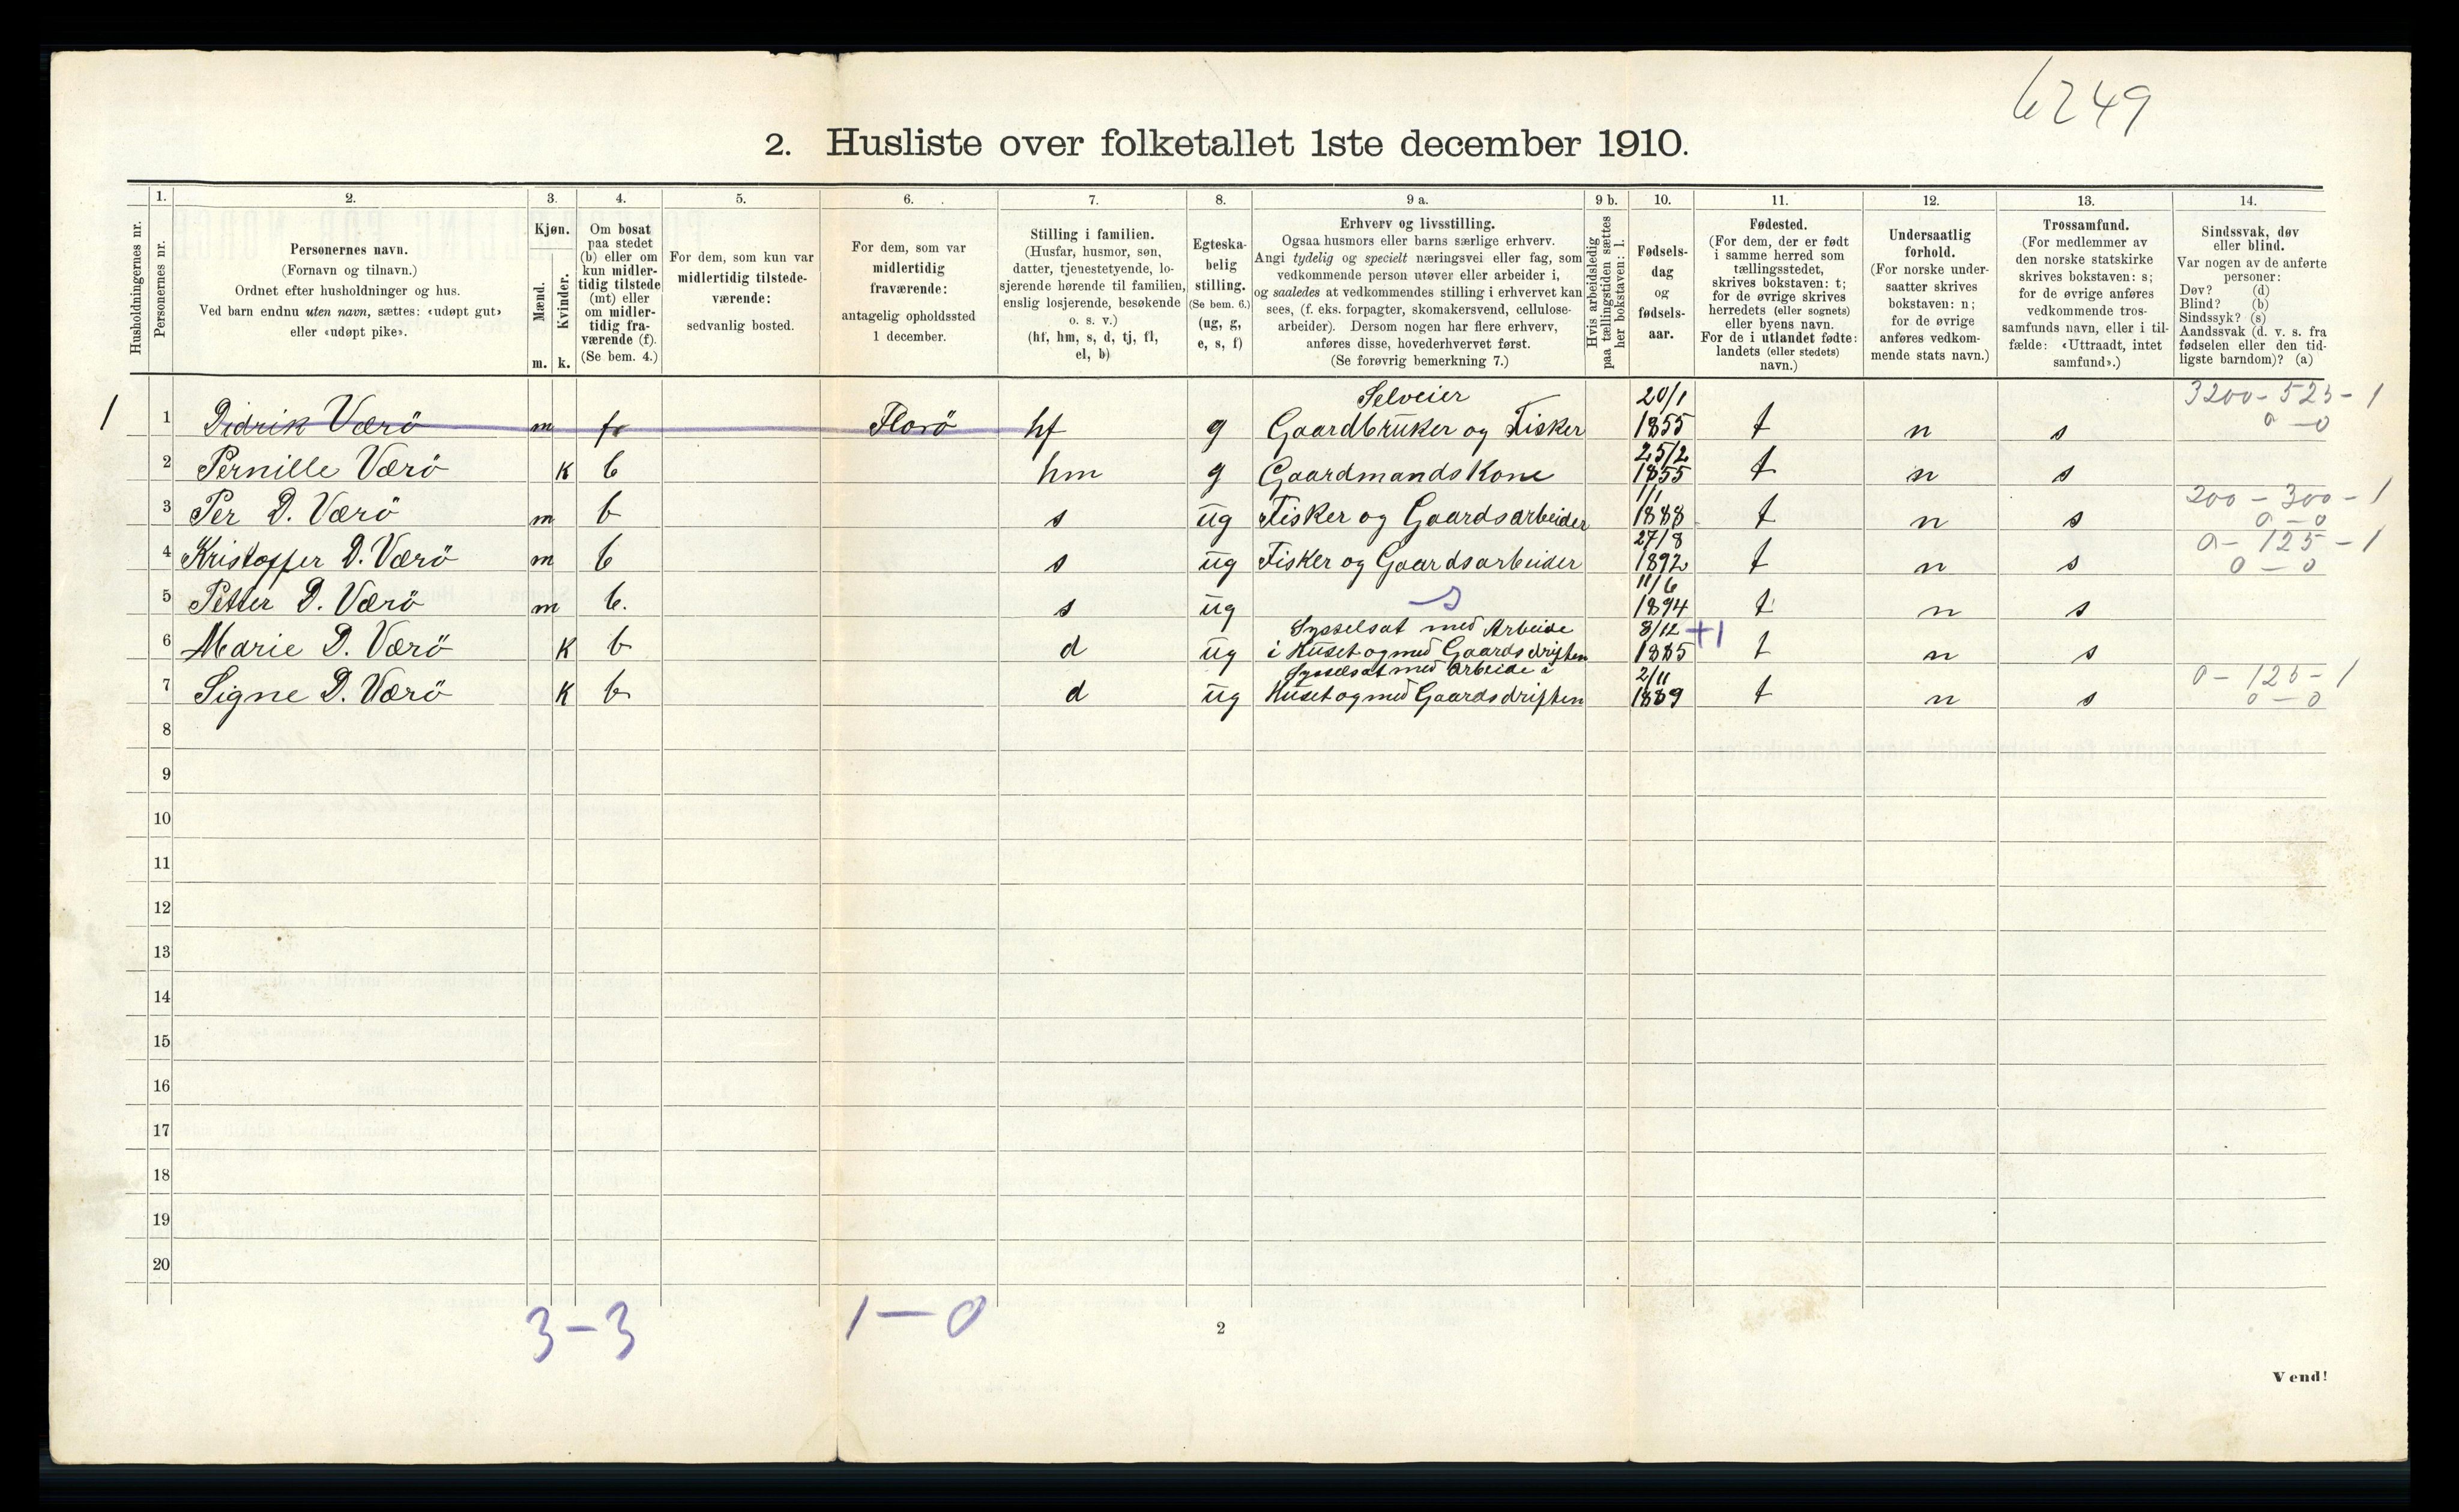 6249
2. Husliste over folketallet 1ste december 1910.
Husholdningernes nr.
1.
Personernes nr.
2.
Personernes navn.
(Fornavn og tilnavn.)
Ordnet efter husholdninger og hus.
Ved barn endnu uten navn, sættes: «udøpt gut»
eller «udøpt pike».
3.
Kjøn.
Mænd.
Kvinder.
m. k.
4.
Om bosat
paa stedet
(b) eller om
kun midler-
tidig tilstede
(mt) eller
om midler-
tidig fra-
værende (f).
(Se bem. 4.)
5.
For dem, som kun var
midlertidig tilstede-
værende:
sedvanlig bosted.
6.
For dem, som var
midlertidig
fraværende:
antagelig opholdssted
1 december.
7.
Stilling i familien.
(Husfar, husmor, søn,
datter, tjenestetyende, lo-
sjerende hørende til familien,
enslig losjerende, besøkende
o. s. v.)
(hf, hm, s, d, tj, fl,
el, b)
8.
Egteska-
belig
stilling.
(Se bem. 6.)
(ug, g,
e, s, f)
9 a.
Erhverv og livsstilling.
Ogsaa husmors eller barns særlige erhverv.
Angi tydelig og specielt næringsvei eller fag, som
vedkommende person utøver eller arbeider i,
og saaledes at vedkommendes stilling i erhvervet kan
sees, (f. eks. forpagter, skomakersvend, cellulose-
arbeider). Dersom nogen har flere erhverv,
anføres disse, hovederhvervet først.
(Se forøvrig bemerkning 7.)
9 b.
Hvis arbeidsledig
paa tællingstiden sættes
her bokstaven: l.
10.
Fødsels-
dag
og
fødsels-
aar.
11.
Fødested.
(For dem, der er født
i samme herred som
tællingsstedet,
skrives bokstaven: t;
for de øvrige skrives
herredets (eller sognets)
eller byens navn.
For de i utlandet fødte:
landets (eller stedets)
navn.)
12.
Undersaatlig
forhold.
(For norske under-
saatter skrives
bokstaven: n;
for de øvrige
anføres vedkom-
mende stats navn.)
13.
Trossamfund.
(For medlemmer av
den norske statskirke
skrives bokstaven: s;
for de øvrige anføres
vedkommende tros-
samfunds navn, eller i til-
fælde: «Uttraadt, intet
samfund».)
14.
Sindssvak, døv
eller blind.
Var nogen av de anførte
personer:
Døv? (d)
Blind? (b)
Sindssyk? (s)
Aandssvak (d. v. s. fra
fødselen eller den tid-
ligste barndom)? (a)
Selveier 20/1 3200-525-1
1 1 Didrik Værö m f Florö hf g Gaardbruker og Fisker 1855 t n s 0-0
25/2
2 Pernille Værö k b hm g Gaardmands Kone 1855 t n s
1/1 200-300-1
3 Per D. Værö m b s ug Fisker og Gaardsarbeider 1888 t n s 0-0
27/8 0-125-1
4 Kristoffer D. Værö m b s ug Fisker og Gaardsarbeider 1892 t n s 0-0
11/6
5 Petter D. Værö m b. s ug s 1894 t n s
Sysselsat med Arbeide 8/12 +1
6 Marie D. Værö k b d ug i Huset og med Gaardsdriften 1885 t n s
Sysselsat med Arbeide i 2/11 0-125-1
7 Signe D. Værö k b d ug Huset og med Gaardsdriften 1889 t n s 0-0
8
9
10
11
12
13
14
15
16
17
18
19
20
3-3 1-0
2
Vend!